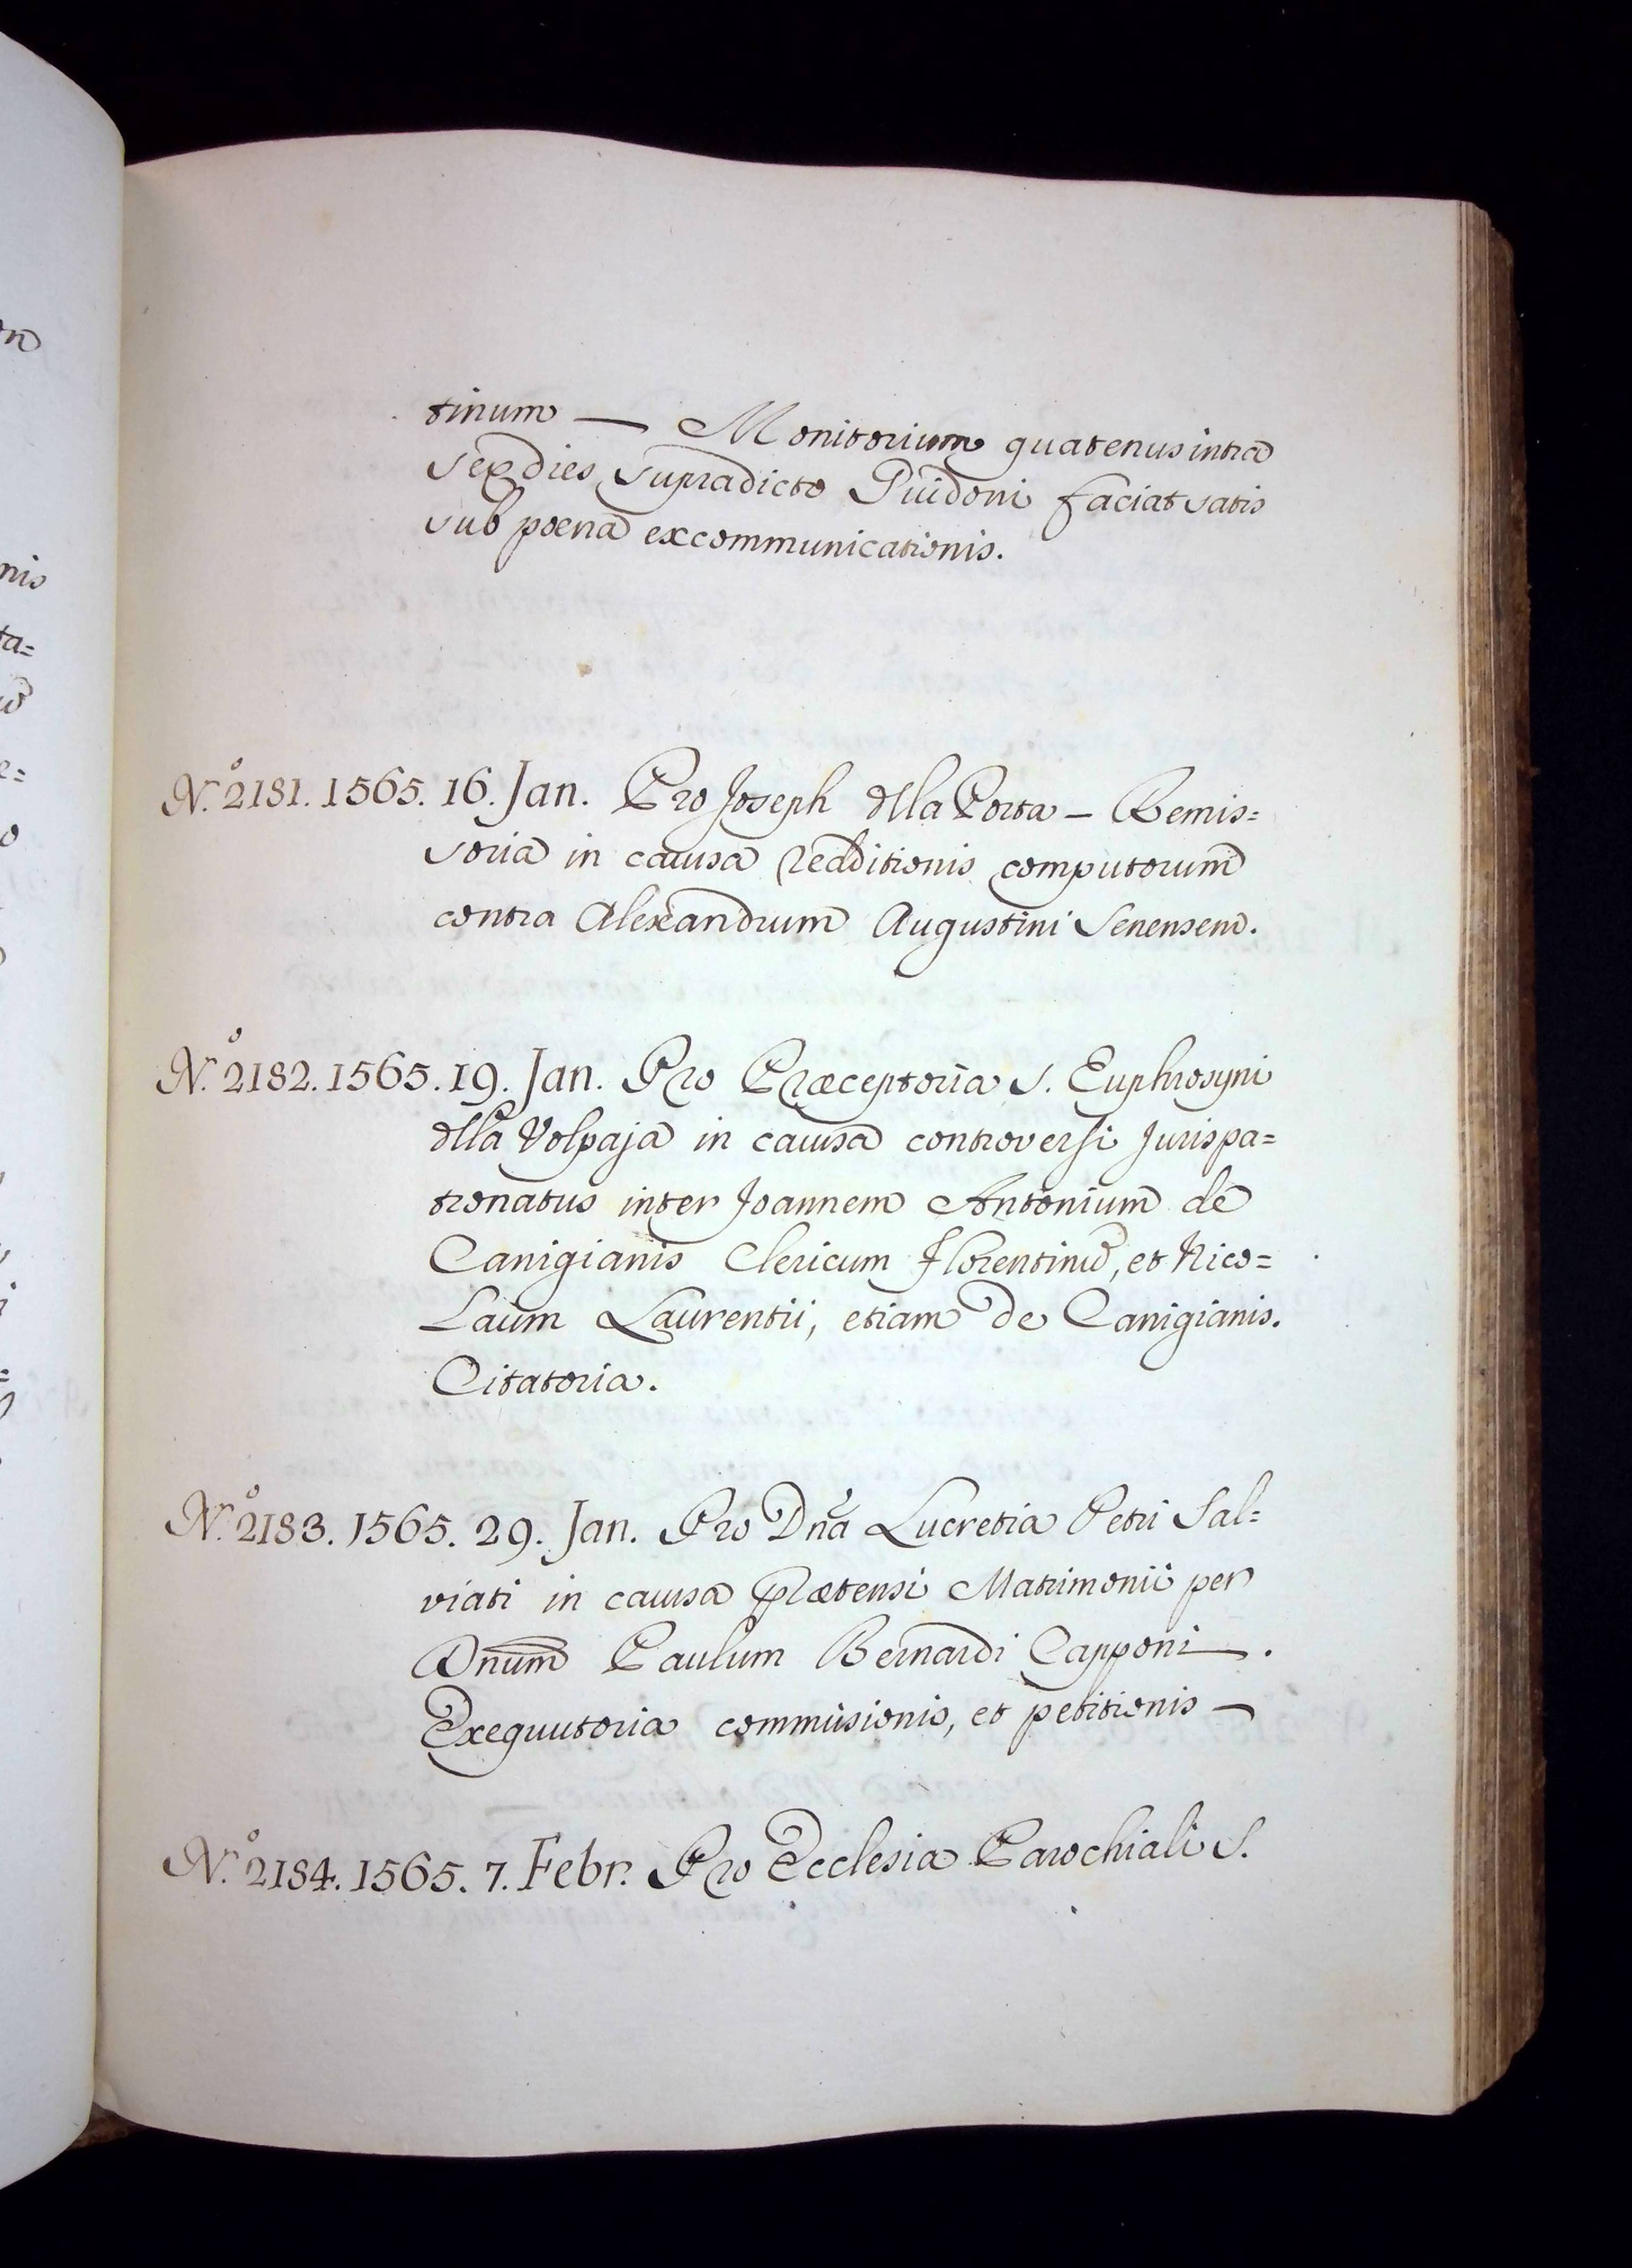 tinum — Monitorium quatenus intra
sex dies supradicto Guidoni faciat satis
sub poena excommunicationis.
N.º 2181. 1565. 16. Jan. Pro Joseph dlla Porta – Remis=
soria in causa redditionis computorum
contra Alexandrum Augustini Senensem.
N.º 2182. 1565. 19. Jan. Pro Præceptoria S. Euphrosyni
dlla Volpaja in causa controversi Jurispa=
tronatus inter Joannem Antonium de
Canigianis Clericum Florentinũ, et Nico=
laum Laurentii, etiam de Canigianis.
Citatoria.
N.º 2183. 1565. 29. Jan. Pro Dña Lucretia Petri Sal=
viati in causa prætensi Matrimonii per
Dnum Paulum Bernardi Capponi.
Exequutoria commissionis, et petitionis —
N.º 2184. 1565. 7. Febr. Pro Ecclesia Parochiali S.